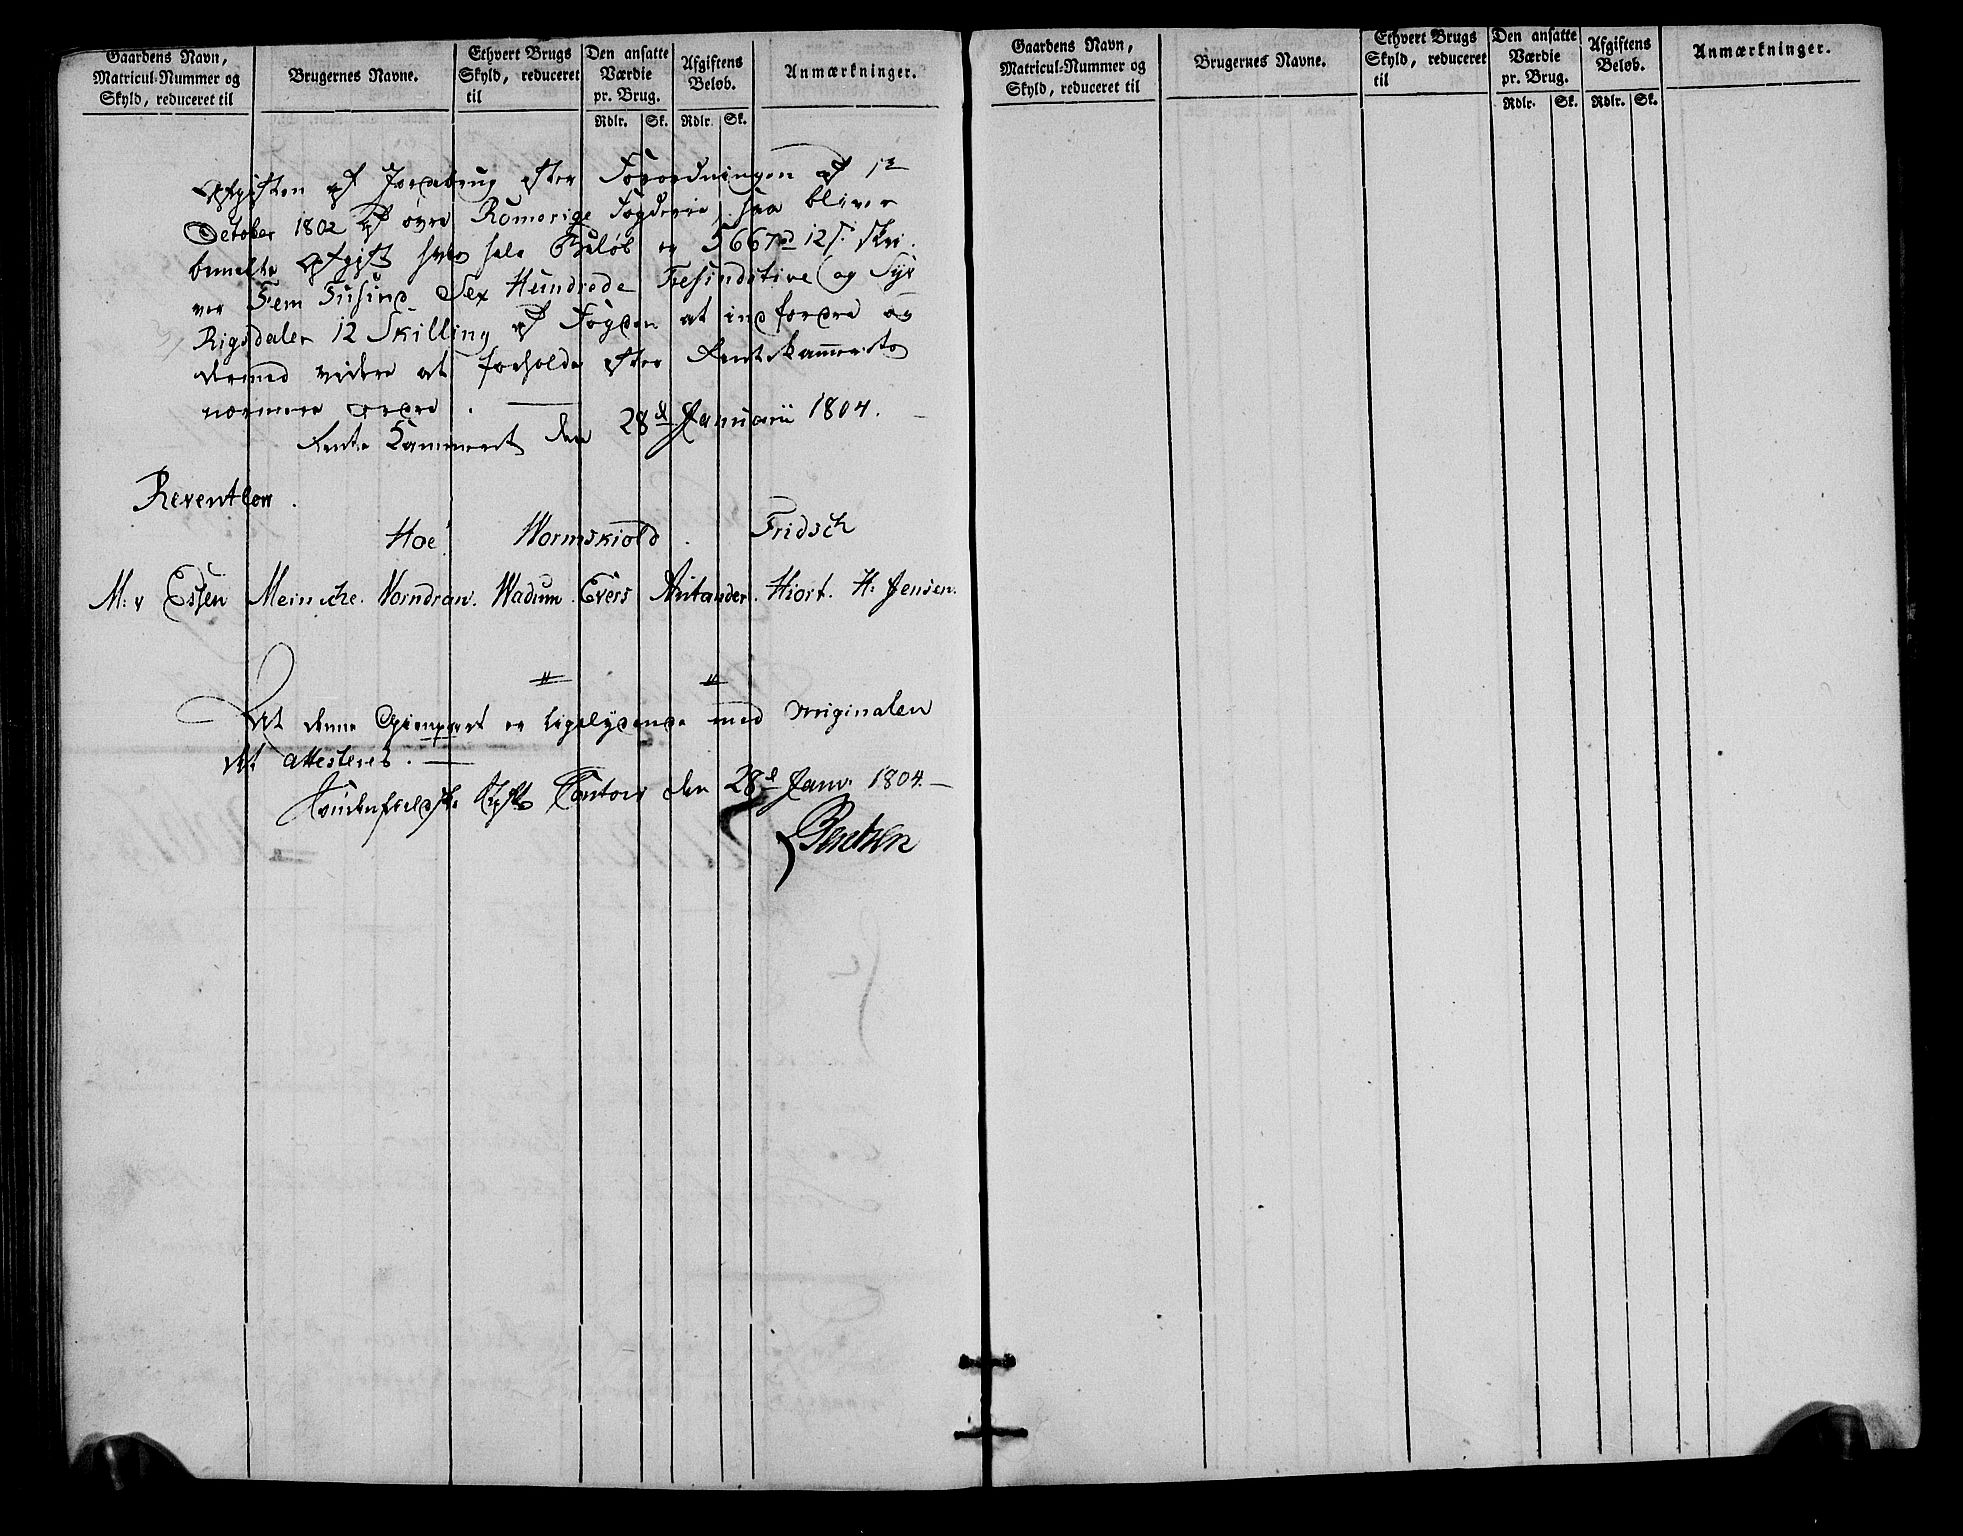 Gaardens Navn,
Matricul-Nummer og
Skyld, reduceret til
Brugernes Navne.
Ethvert Brugs
Skyld, reduceret
til
Den ansatte
Værdie
pr. Brug.
Rdlr. Sk.
Afgiftens
Beløb.
Rdlr. Sk.
Anmærkninger.
Afgivten af Jordebrug efter Forordningen af 1te
October 1802 af øvre Romerige Fogderie, saa bliver
bemelte Afgift hvis hele Beløb er 5667 rd 12 s. skri-
ver Fem Tusind Sex Hundrede Tresindstive og Syv
Rigsdaler 12 Skilling af Fogden at indfordre og
dermed videre at forholde efter Rentekammerets
nærmere ordre. —
Rente Kammeret den 28de Januarii 1804. —
Reventlow.
Hoé. Wormskiold. Fridsch
M: v Essen Meinche. Vorndran. Wadum. Evers Hiort. H. Jensen.
At denne Gienpart er ligelydende med Originalen
det attesteres. —
Contoir den 28d Janv. 1804. —
Bentzen
Gaardens Navn,
Matricul-Nummer og
Skyld, reduceret til
Brugernes Navne.
Ethvert Brugs
Skyld, reduceret
til
Den ansatte
Værdie
pr. Brug.
Rdlr. Sk.
Afgiftens
Beløb.
Rdlr. Sk.
Anmærkninger.